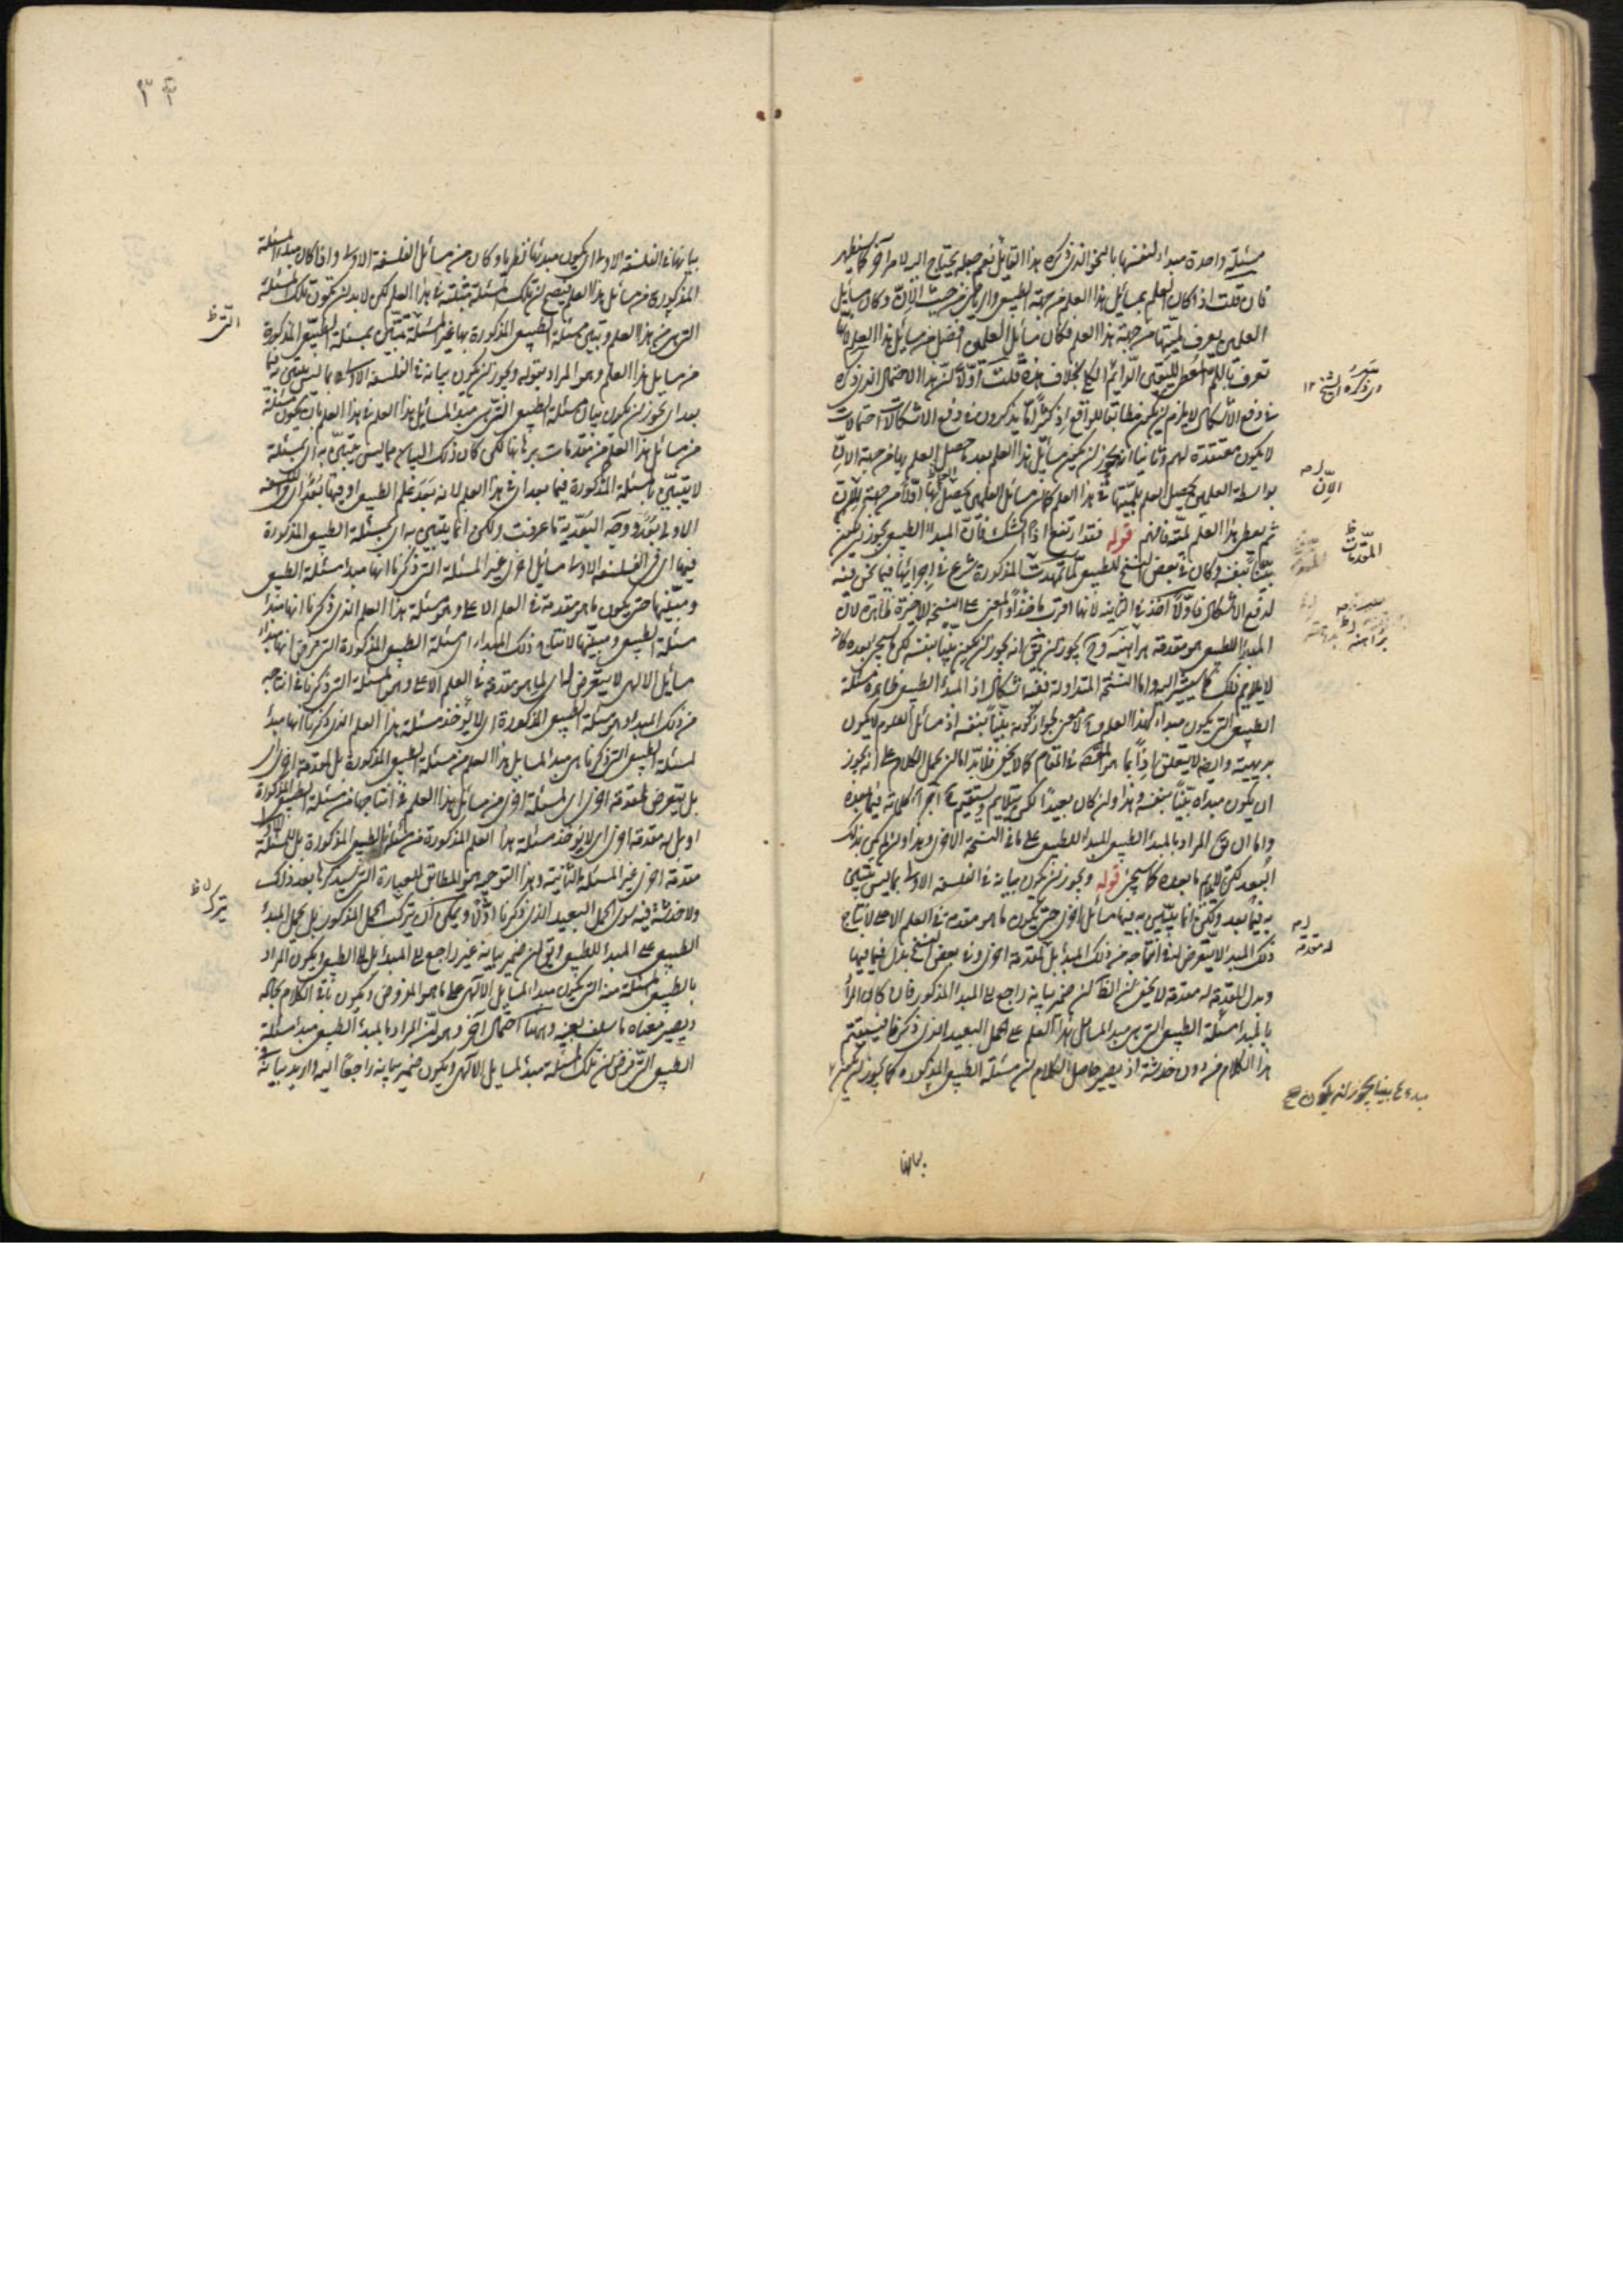 مسئلة واحدة مبدا لنفسها بالنحو الذى ذكره هذا القايل نعم جعله يحتاج اليه لامر آخر كما سيظهر
فان قلت اذا كان العلم بمسائل هذا العلم من جهة الطبيعى والرياضى من حيث الإنّ وكان مسايل
العلمين يعرف لميتها من جهة هذا العلم فكان مسائل العلمين افضل من مسايل هذا العلم
تعرف باللم المعطى لليقين الدائم الكلى بخلاف هذه قلت اوّلا انّ هذا الاحتمال الذى ذكره
فى دفع الاشكال لا يلزم ان يكون مطابقا للواقع اذ كثيرا ما يذكرون فى دفع الاشكالات احتمالات
لا يكون معتقدة لهم وثانيا انه يجوز ان يكون مسايل هذا العلم بعد حصل العلم بها من جهة الانّ
بواسطة العلمين يحصل العلم بلميتها فى هذا العلم كما ان مسائل العلمين يحصل اوّلا من جهة الإنّ
ثم يعطى هذا العلم لمّه فافهم قوله فقد ارتفع اذا الشك فانّ المبدا الطبيعى يجوز ان يكون
بيّنا بنفسه وكان فى بعض النسخ للطبيعى لما تمهدت المذكورة شرع فى اجرائها فيما نحن فيه
لدفع الاشكال فاوّلا اخذ فى الثانية لانها اقرب ماخذا والمعنى على النسخة الاخيرة ظاهرة لان
المبدا للطبيعى هو مقدمة براهينه وح يجوز ان يق انه يجوز ان يكون بيّنا بنفسه لكن سيجىء بعده كانه
لا يلايم ذلك كما سنشير اليه واما النسخة المتداولة ففيها اشكال اذ المبدا الطبيعى ظاهره مسئلة
الطبيعى التى يكون مبداء لهذا العلم وح لا معنى لجواز كونه بيّنا بنفسه اذ مسائل العلوم لا يكون
بديهية وايضه لا يتعلق اذا بما هو المقصد فى المقام كما لا يخفى فلا بدّ اما ان يحمل الكلام على انه يجوز
ان يكون مبداه بيّنا بنفسه وهذا وان كان بعيدا لكن يتلايم ويستقيم ح اجزاء كلامه فيما بعده
واما ان يق المراد بالمبدا الطبيعى المبدا للطبيعى على ما فى النسخة الاخرى وهذا وان لم يكن بذلك
البعد لكن لا يلايم ما بعده كما سيجىء قوله ويجوز ان يكون بيانه فى الفلسفة الاولى بما ليس يتبيّن
به فيما بعد ولكن انما يتبيّن به فيها مسائل اخرى حتى يكون ما هو مقدمة فى العلم الاعلى لانتاج
ذلك المبدا لا يتعرض له فى انتاجه من ذلك المبدا بل لمقدمة اخرى وفى بعض النسخ بدل فيما فيها
وبدل للمقدمة له مقدمة لا يخفى ان الظ ان ضمير بيانه راجع الى المبدا المذكور فان كان المراد
بالمبدا مسئلة الطبيعى التى هى مبدا المسائل هذا العلم على الحمل البعيد الذى ذكرنا فيستقيم
هذا الكلام من دون خدشة اذ يصير حاصل الكلام ان مسئلة الطبيعى المذكورة كما يجوز ان يكون
مبدءها بينا يجوز ان يكون صح
الإنّ
المقدمات ظ
براهينه
له مقدمة
بيانها
٣٣
بيانها فى الفلسفة الاولى اى يكون مبدئها نظريا وكان من مسائل الفلسفة الاولى واذا كان مبدا المسئلة
المذكورة من مسائل هذا العلم فيصح ان تلك المسئلة مثبتة فى هذا العلم لكن لا بد ان تكون تلك المسئلة
التى هى من هذا العلم وتبين مسئلة الطبيعى المذكورة بها غير المسئلة تتبيّن بمسئلة الطبيعى المذكورة
من مسايل هذا العلم وهو المراد بقوله ويجوز ان يكون بيانه فى الفلسفة الاولى بما ليس يتبيّن به فيما
بعد اى يجوز ان يكون بيان مسئلة الطبيعى التى هى مبدء لمسايل هذا العلم فى هذا العلم بان يكون مسئلة
من مسائل هذا العلم من مقدمات برهانها لكن كان ذلك البيان بما ليس يتبيّن به اى بمسئلة
لا يتبيّن بالمسئلة المذكورة فيما بعد اى فى هذا العلم لانه بعد علم الطبيعى او فيها بعد اى الفلسفة
الاولى بعد ووجه البعدية ما عرفت ولكن انما يتبيّن به اى بمسئلة الطبيعى المذكورة
فيها اى فى الفلسفة الاولى مسايل اخرى غير المسئلة التى ذكرنا انها مبدء مسئلة الطبيعى
ومبيّنها حتى يكون ما هو مقدمة فى العلم الاعلى وهو مسئلة هذا العلم الذى ذكرنا انها مبدء
مسئلة الطبيعى ومبيّنها لانتاج ذلك المبداء اى مسئلة الطبيعى المذكورة التى فرض انها مبداء
مسايل الالهى لا يتعرض لها اى لما هو مقدمة فى العلم الاعلى وهو المسئلة التى ذكرنا فى انتاجه
من ذلك المبدا وهى مسئلة الطبيعى المذكورة اى لا يؤخذ مسئلة هذا العلم الذى ذكرنا انها مبدء
لمسئلة الطبيعى التى ذكرنا هى مبدء لمسايل هذا العلم من مسئلة الطبيعى المذكورة بل لمقدمة اخرى اى
بل يتعرض لمقدمة اخرى اى لمسئلة اخرى من مسائل هذا العلم فى انتاجها من مسئلة الطبيعى المذكورة
او بل له مقدمة اخرى اى لا يؤخذ مسئلة هذا العلم المذكورة من مسئلة الطبيعى المذكورة بل لمسئلة
مقدمة اخرى غير المسئلة الثانية وهذا التوجيه هو المطابق للعبارة التى سيذكرها بعد ذلك
ولا خدشة فيه سوى الحمل البعيد الذى ذكرنا اوّلا ويمكن ان يترك الحمل المذكور بل يحمل المبدا
الطبيعى على المبدا للطبيعى ويق ان ضمير بيانه غير راجع الى المبدا بل الى الطبيعى ويكون المراد
بالطبيعى المسئلة منه التى يكون مبدا لمسايل الالهى على ما هو المفروض ويكون باقى الكلام بحاله
ويصير معناه ما سلف بعينه وههنا احتمال آخر وهو انّ المراد بالمبدا الطبيعى مبدء مسئلة
الطبيعى التى فرض ان تلك المسئلة مبدء لمسايل الالهى ويكون ضمير بيانه راجعا اليه واريد بيانه
التى ظ
يترك ظ